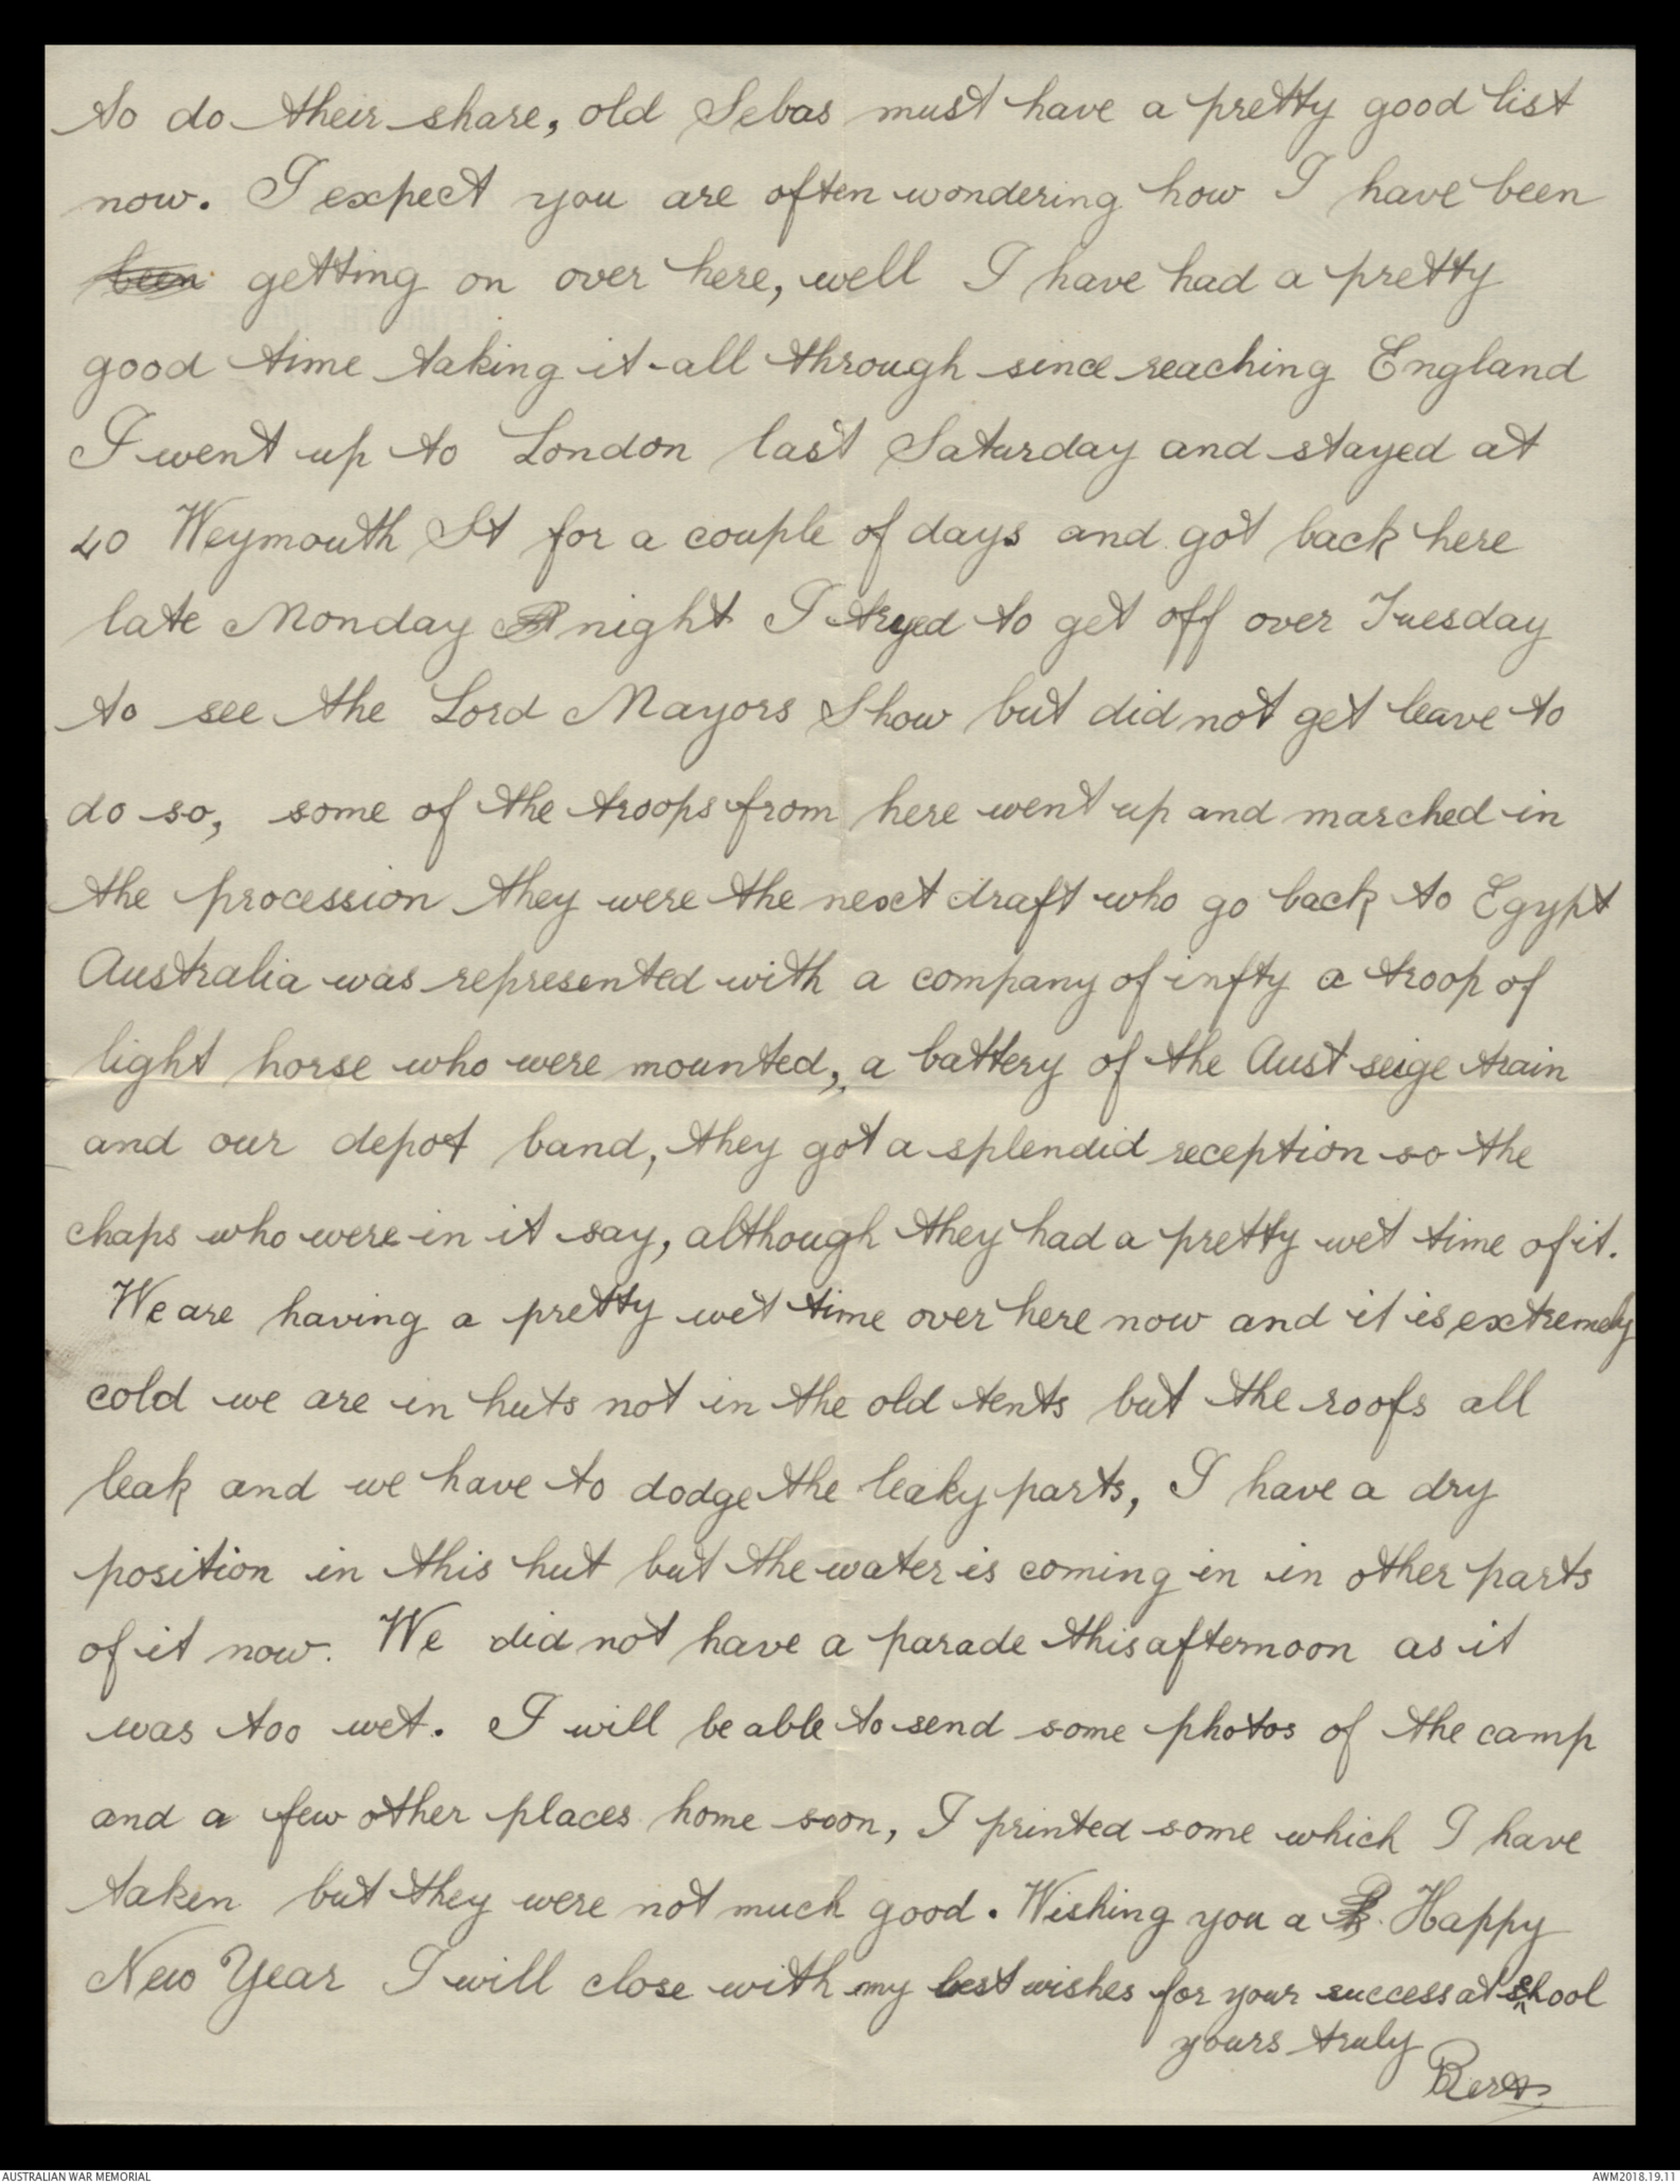 to do their share, old Sebas must have a pretty good list
now. I expect you are often wondering how I have been
been getting on over here, well I have had a pretty
good time taking it all through since reaching England
I went up to London last Saturday and stayed at
40 Weymouth St for a couple of days and got back here
late Monday night I tryed to get off over Tuesday
to see the Lord Mayors Show but did not get leave to
do so, some of the troops from here went up and marched in
the procession they were the next draft who go back to Egypt
Australia was represented with a company of infty a troop of
light horse who were mounted, a battery of the Aust seige train
and our depot band, they got a splendid reception so the
chaps who were in it say, although they had a pretty wet time of it.
We are having a pretty wet time over here now and it is extremely
cold we are in huts not in the old tents but the roofs all
leak and we have to dodge the leaky parts, I have a dry
position in this hut but the water is coming in in other parts
of it now. We did not have a parade this afternoon as it
was too wet. I will be able to send some photos of the camp
and a few other places home soon, I printed some which I have
taken but they were not much good. Wishing you a Happy
New Year I will close with my best wishes for your success at school
yours truly
Bert
AUSTRALIAN WAR MEMORIAL
AWM2018.19.11